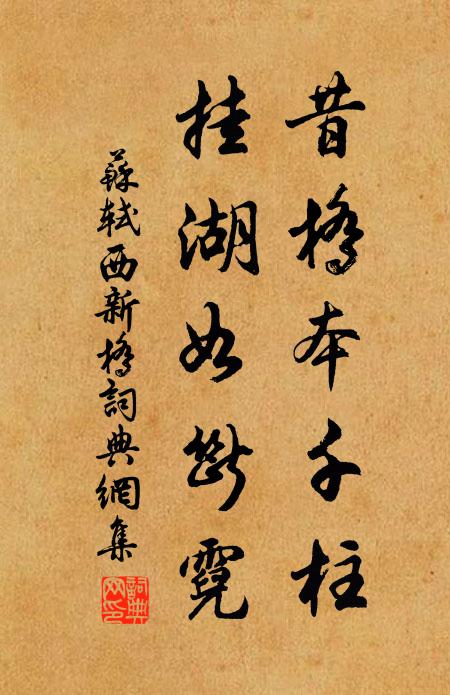 昔橋本千柱
挂湖如斷霓
蘇軾西新橋詞典網集
詞典網印